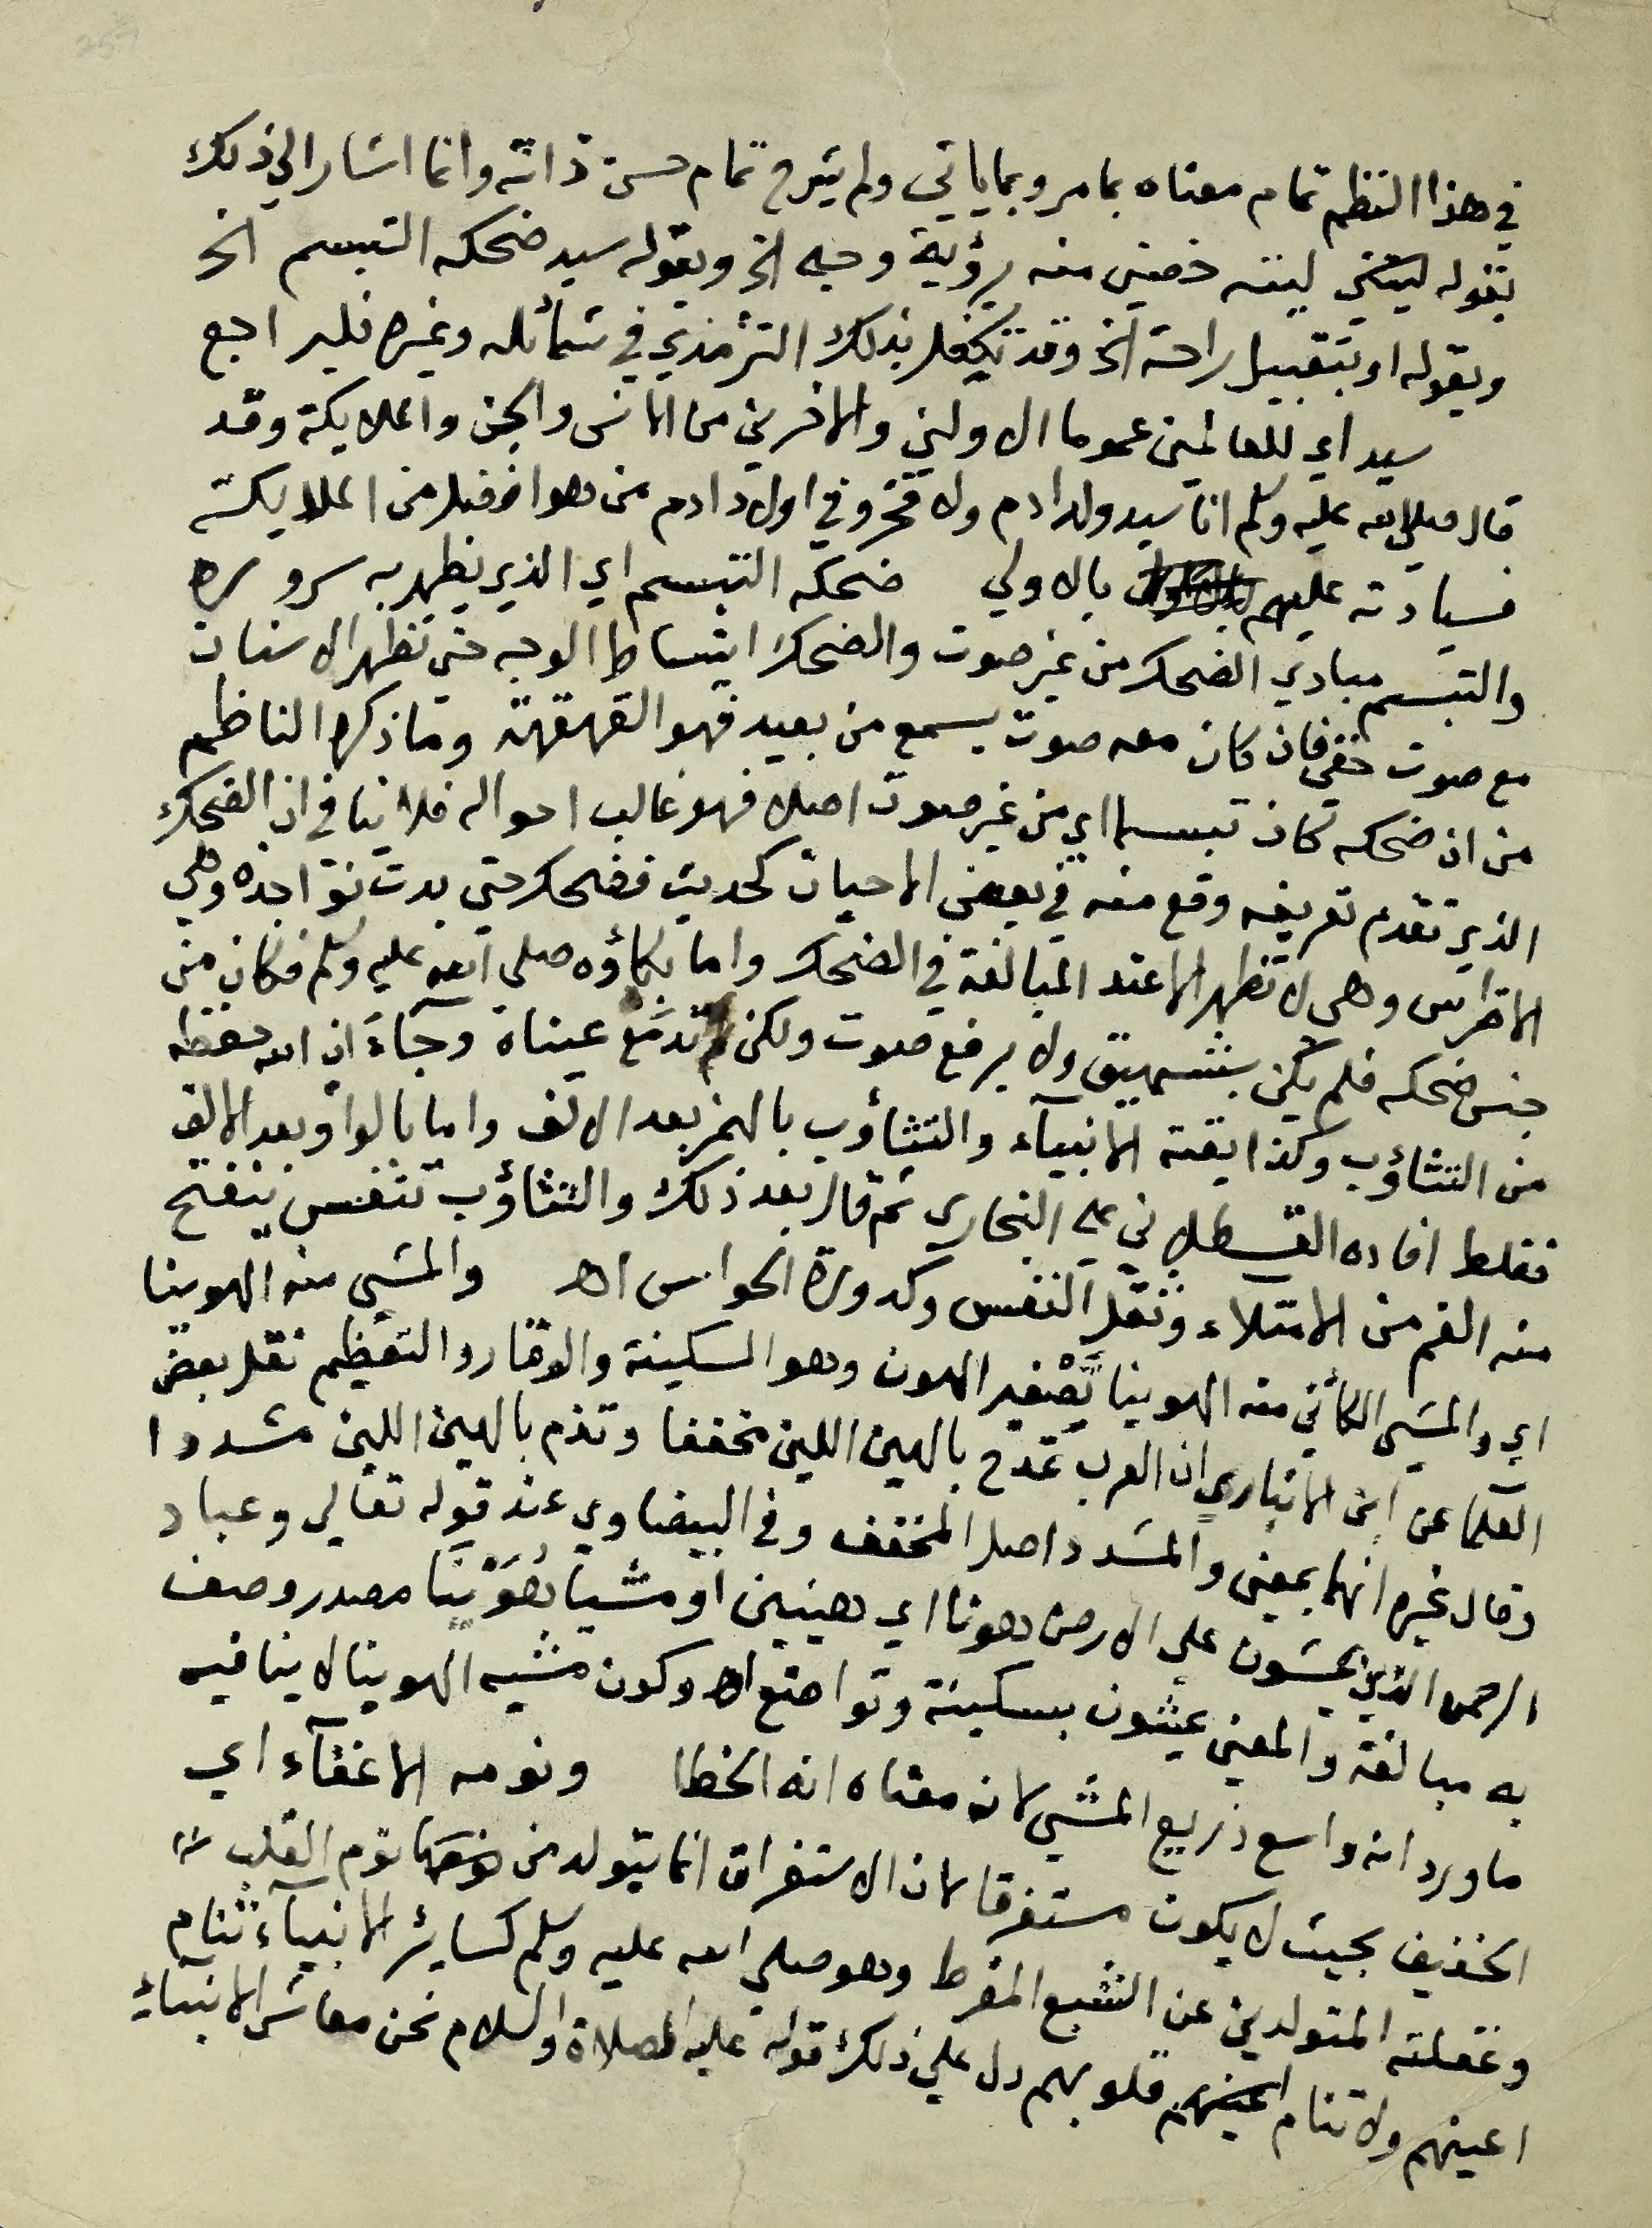 في هذا النظم تمام معناه بما مر وبما ياتي ولم يشرح تمام حسن ذاته وانما اشار الي ذلك
بقوله ليته خصني منه برؤية وجه الخ وبقوله سيد ضحكه التبسم الخ
وبقوله او بتقبيل راحة الخ وقد تكفل بذلك الترمذي في شمائله وغيره فليراجع
سيد اي للعالمين عموما الاولين والاخرين من الانس والجن والملايكة وقد
قال صلي الله عليه وسلم انا سيد ولد ادم ولا فخر وفي اولاد ادم من هو افضل من الملايكة
فسيادته عليهم بالاولي ضحكه التبسم اي الذي يظهر به سروره
والتبسم مبادي الضحك من غير صوت والضحك انبساط الوجه حتي تظهر الاسنان
مع صوت خفي فان كان معه صوت يسمع من بعيد فهو القهقهة وما ذكره الناظم
من ان ضحكه كان تبسما اي من غير صوت اصلا فهو غالب احواله فلا ينافي ان الضحك
الذي تقدم تعريفه وقع منه في بعض الاحيان كحديث فضحك حتي بدت نواجذه وهي
الاضراس وهي لا تظهر الا عند المبالغة في الضحك واما بكاؤه صلي الله عليه وسلم فكان من
جنس ضحكه فلم يكن بشهيق ولا برفع صوت ولكن تدمع عيناه وجآء ان الله حفظه
من التثاؤب وكذا بقية الانبيآء والتثاؤب بالهمز بعد الالف واما بالواو بعد الالف
فغلط افاده القسطلاني علي البخاري ثم قال بعد ذلك والتثاؤب تنفس ينفتح
منه الفم من الامتلاء وثقل النفس وكدورة الحواس اهـ والمشي منه الهوينا
اي والمشي الكائن منه الهوينا تصغير الهون وهو السكينة والوقار والتعظيم نقل بعض
العلما عن ابن الانباري ان العرب تمدح بالهين اللين مخففا وتذم بالهين اللين مشددا
وقال غيره انهما بمعني والمشدد اصل المخفف وفي البيضاوي عند قوله تعالي وعباد
الرحمن الذين يمشون علي الارض هونا اي هينين او مشيا هوينا مصدر وصف
به مبالغة والمعني يمشون بسكينة وتواضع اهـ وكون مشيه الهوينا لا ينافيه
ما ورد انه واسع ذريع المشي لان معناه انه الخطا ونومه الاغفآء اي
الخفيف بحيث لا يكون مستغرقا لان الاستغراق انما يتولد من نوم القلب
وغفلته المتولدين عن الشبع المفرط وهو صلي الله عليه وسلم كساير الانبيآء تنام
اعينهم ولا تنام قلوبهم دل علي ذلك قوله عليه الصلاة والسلام نحن معاشر الانبياء